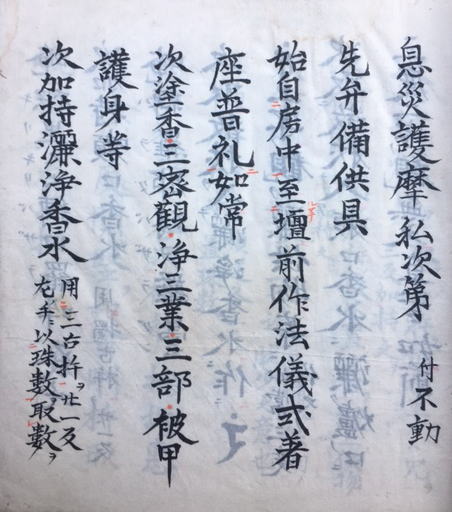 息災護摩私次第 付不動
先弁備供具
始自房中至壇前作法儀式著
座普礼如常
次塗香三密觀浄三業三部被甲
護身等
次加持灑浄香水 用三古杵ヲ廿一反
左手以珠數取數ヲ